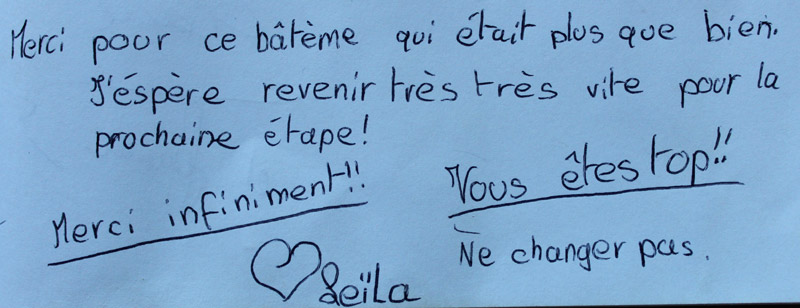 Merci pour ce bâtème qui était plus que bien.
J'éspère revenir très très vite pour la
prochaine étape!
Merci infiniment!!
Vous êtes top!!
Ne changer pas.
Leïla